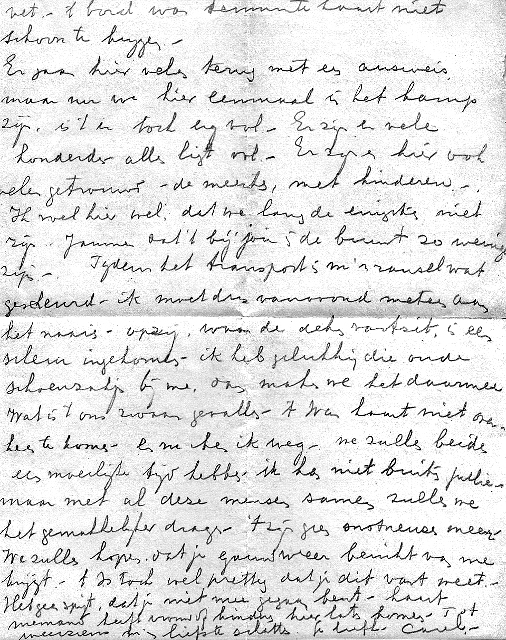 vet. - 't bord was haast niet
schoon te krijgen -
Er gaan hier velen terug met een ausweis,
maar nu we hier eenmaal in het kamp
zijn, is 't er toch erg vol - Er zijn er vele
honderden alles ligt vol. - Er zijn er hier ook
velen getrouwd - de meeste, met kinderen -.
Ik voel hier wel, dat we lang de enigste niet
zijn. Jammer dat 't bij jou in de buurt zo weinig
zijn - Tijdens het transport is m'n ransel wat
gescheurd - ik moet dus vanavond meteen aan
het naaien - opzij, waar de deken vastzit, is een
scheur ingekomen - ik heb gelukkig die oude
bij me, dan maken we het daarmee
Wat is 't ons zwaar gevallen - 't Was haast niet over
heen te komen - en nu ben ik weg - we zullen beide
een moeilijke tijd hebben - ik kan niet buiten jullie -
maar met al deze mensen samen zullen we
het gemakkelijker dragen - 't zijn geen meer -
We zullen hopen, dat je gauw weer bericht van me
krijgt - 't Is toch wel prettig dat je dit vast weet. -
Het geen spijt, dat je niet mee gegaan bent - haast
niemand heeft vrouw of kinderen hier laten komen - Tot
weerziens m'n liefste je liefh.